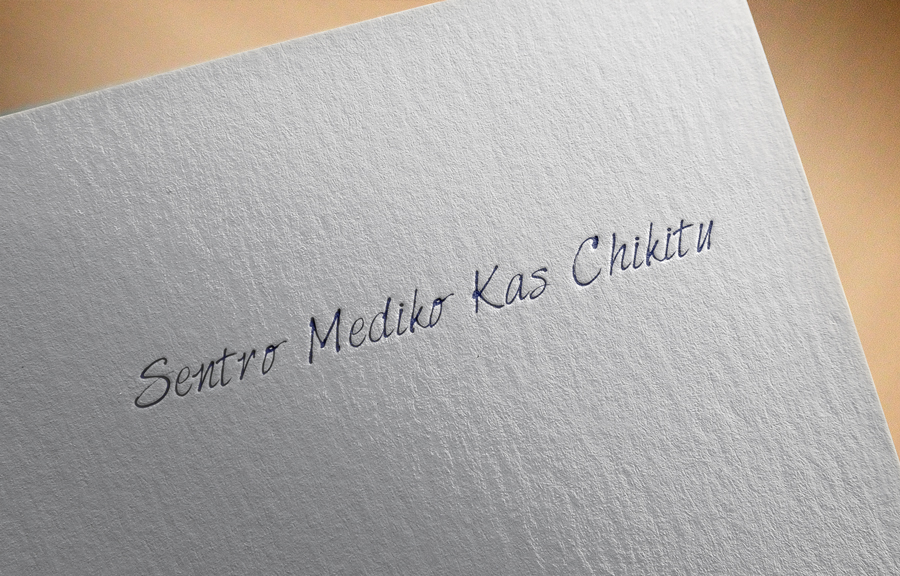 Sentro Mediko Kas Chikitu